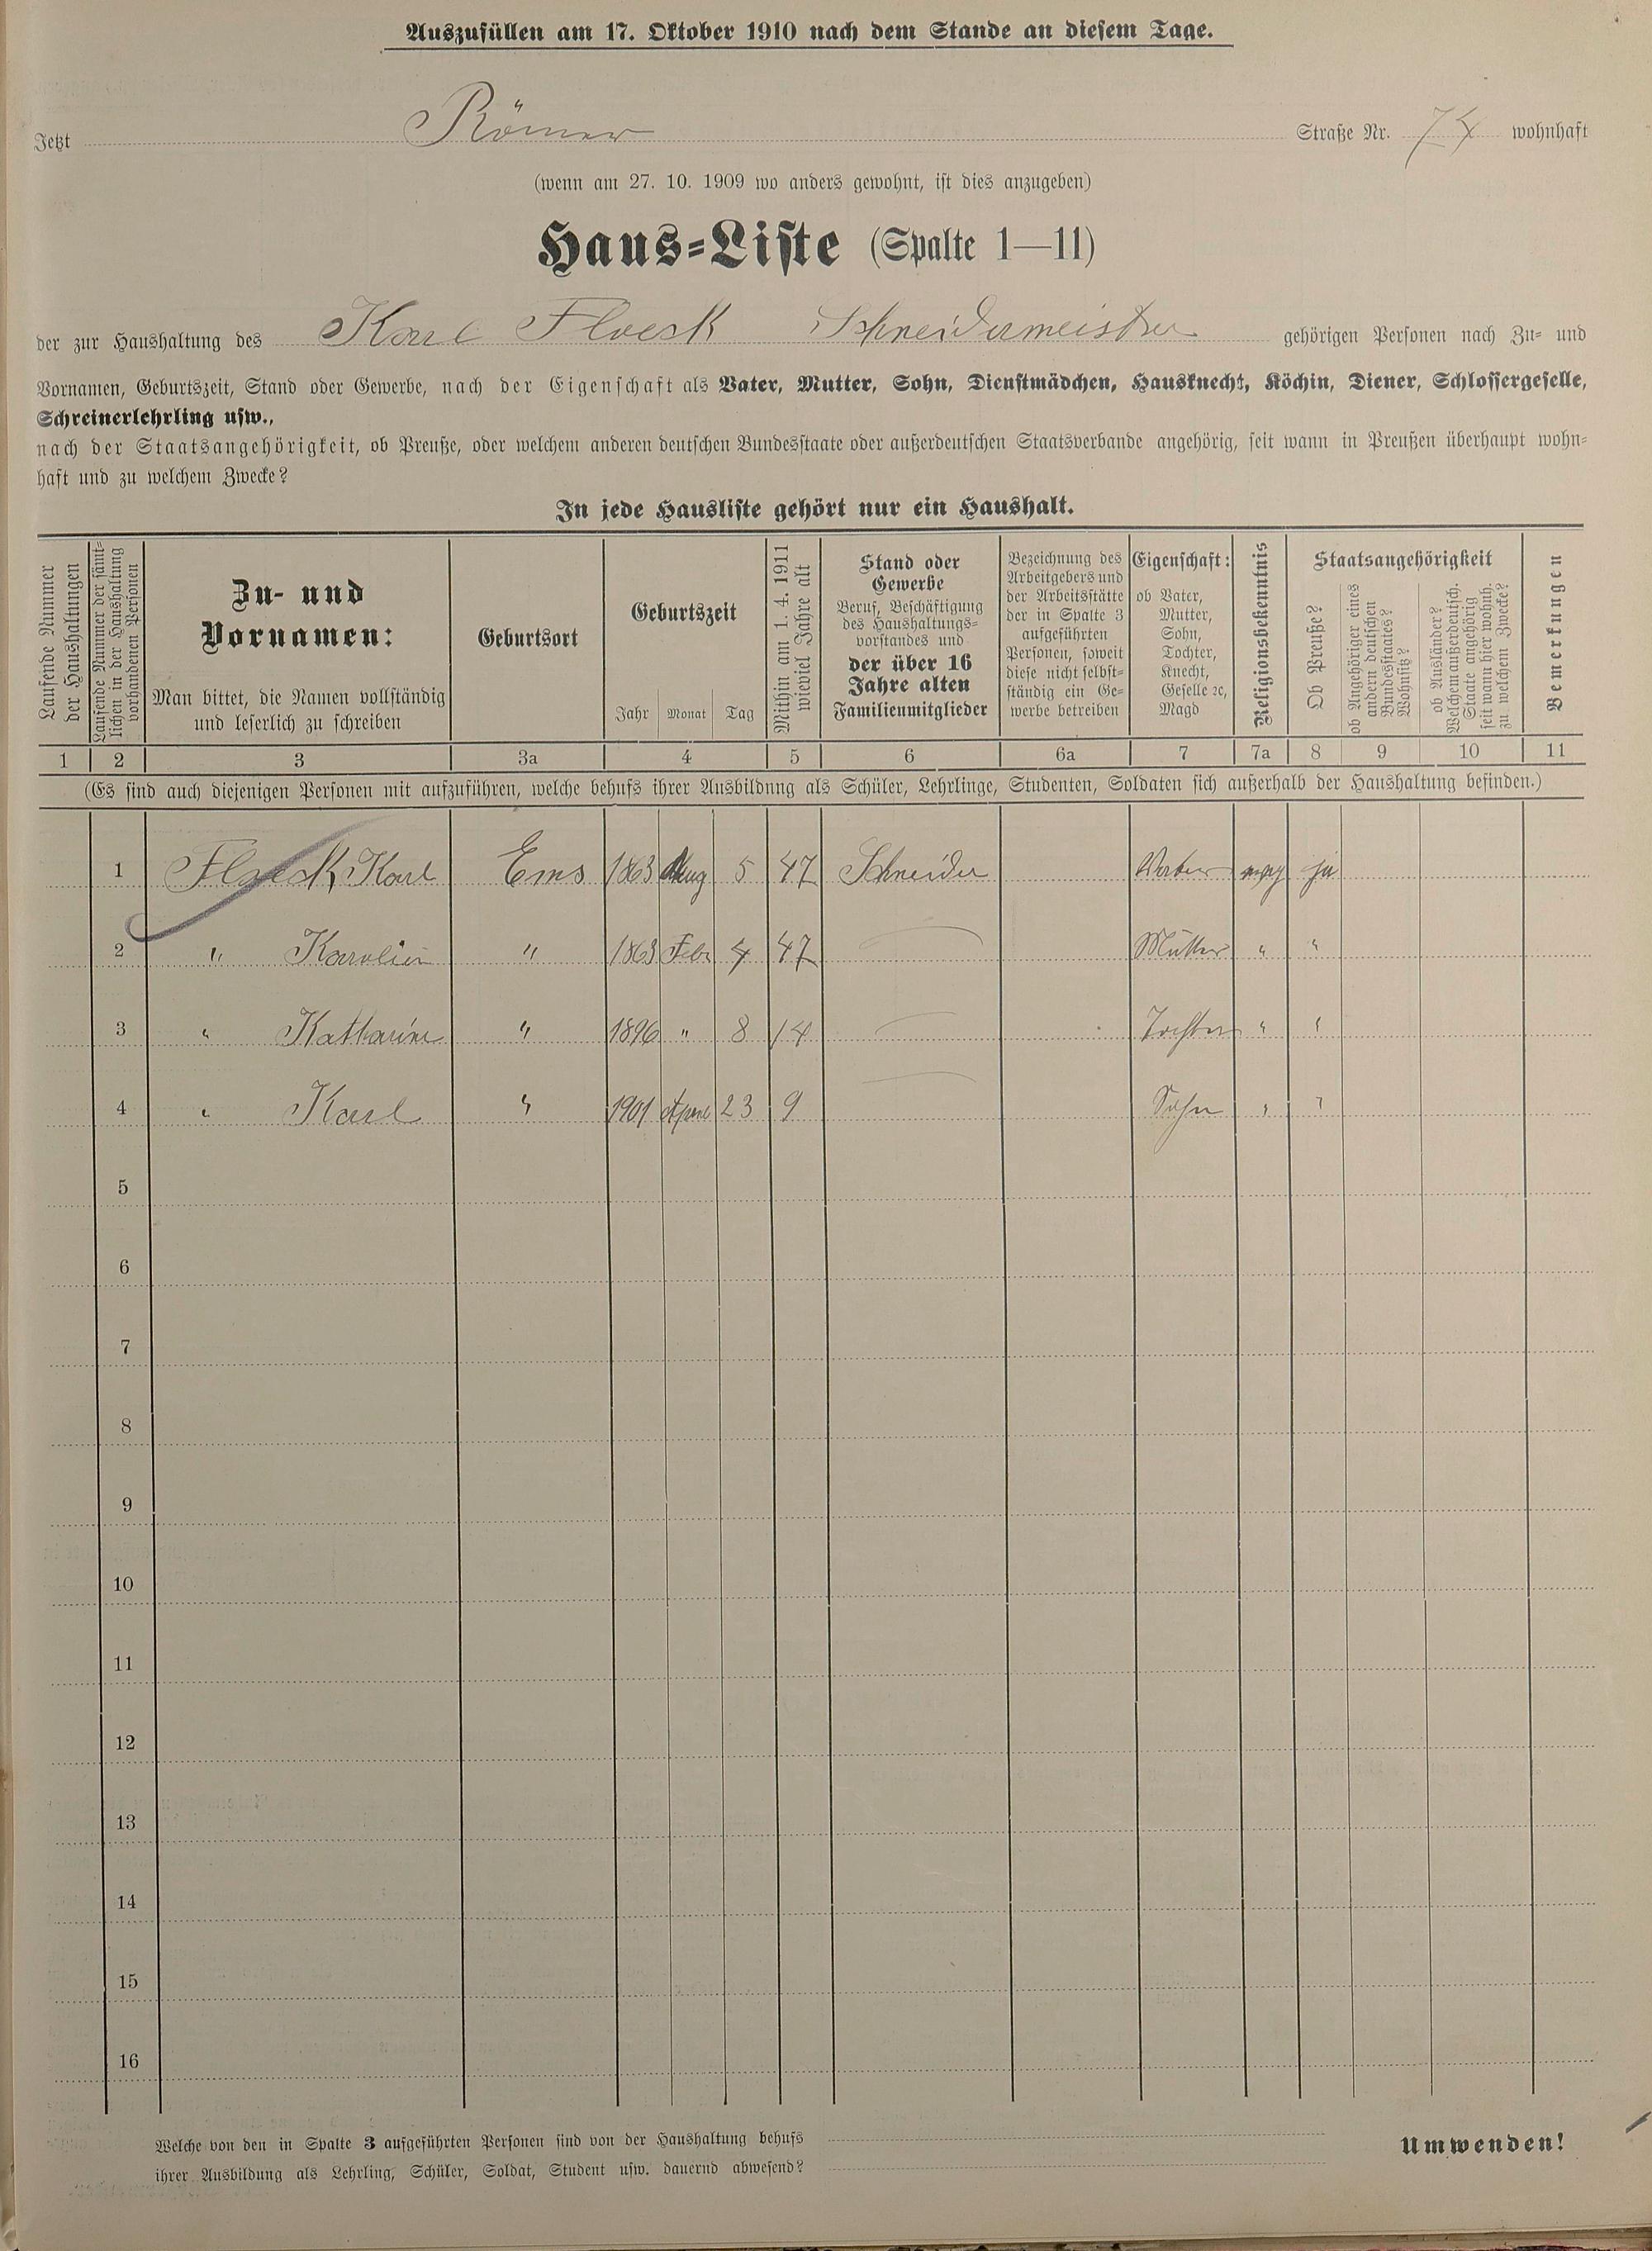 Auszufüllen am 17. Oktober 1910 nach dem Stande an diesem Tage.
Jetzt Römer Straße Nr. 74 wohnhaft
(wenn am 27. 10. 1909 wo anders gewohnt, ist dies anzugeben)
Haus=Liste (Spalte 1—11)
der zur Haushaltung des Karl Floeck Schneidermeister gehörigen Personen nach Zu= und
Vornamen, Geburtszeit, Stand oder Gewerbe, nach der Eigenschaft als Vater, Mutter, Sohn, Dienstmädchen, Hausknecht, Köchin, Diener, Schlossergeselle,
Schreinerlehrling usw.,
nach der Staatsangehörigkeit, ob Preuße, oder welchem anderen deutschen Bundesstaate oder außerdeutschen Staatsverbande angehörig, seit wann in Preußen überhaupt wohn=
haft und zu welchem Zwecke?
In jede Hausliste gehört nur ein Haushalt.
Laufende Nummer
der Haushaltungen
Laufende Nummer der sämt=
lichen in der Haushaltung
vorhandenen Personen
Zu- und
Vornamen:
Man bittet, die Namen vollständig
und leserlich zu schreiben
Geburtsort
Geburtszeit
Jahr Monat Tag
Mithin am 1. 4. 1911
wieviel Jahre alt
Stand oder
Gewerbe
Beruf, Beschäftigung
des Haushaltungs=
vorstandes und
der über 16
Jahre alten
Familienmitglieder
Bezeichnung des
Arbeitgebers und
der Arbeitsstätte
der in Spalte 3
aufgeführten
Personen, soweit
diese nicht selbst=
ständig ein Ge=
werbe betreiben
Eigenschaft:
ob Vater,
Mutter,
Sohn,
Tochter,
Knecht,
Geselle ꝛc,
Magd
Religionsbekenntnis
Staatsangehörigkeit
Ob Preuße?
ob Angehöriger eines
andern deutschen
Bundesstaates?
Wohnsitz?
ob Ausländer?
Welchem außerdeutsch.
Staate angehörig
seit wann hier wohnh.
zu welchem Zwecke?
Bemerkungen
1 2 3 3a 4 5 6 6a 7 7a 8 9 10 11
(Es sind auch diejenigen Personen mit aufzuführen, welche behufs ihrer Ausbildung als Schüler, Lehrlinge, Studenten, Soldaten sich außerhalb der Haushaltung befinden.)
1 Floeck, Karl Ems 1863 Aug 5 47 Schneider Vater ja
2 " Karolin " 1863 Febr 4 47 Mutter " "
3 " Katharine " 1896 " 8 14 Tochter " "
4 " Karl " 1901 April 23 9 Sohn " "
5
6
7
8
9
10
11
12
13
14
15
16
Welche von den in Spalte 3 aufgeführten Personen sind von der Haushaltung behufs
ihrer Ausbildung als Lehrling, Schüler, Soldat, Student usw. dauernd abwesend?
Umwenden!